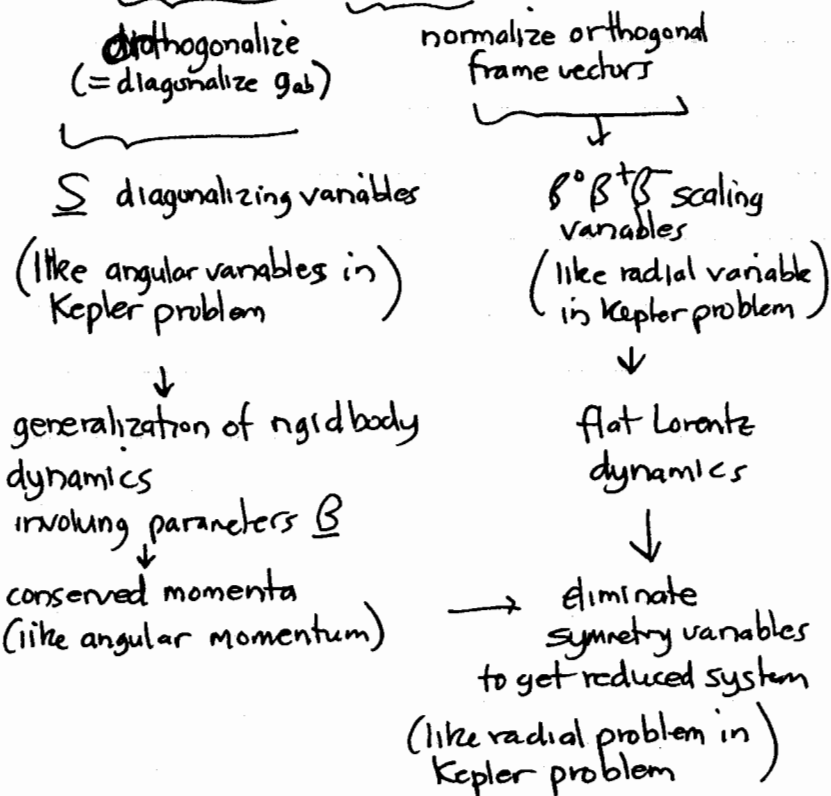 orthogonalize
(= diagonalize gab)
S diagonalizing variables
(like angular variables in
Kepler problem)
↓
generalization of rigid body
dynamics
involving parameters β
↓
conserved momenta
(like angular momentum)
→
normalize orthogonal
frame vectors
↓
β⁰β⁺β⁻ scaling
variables
(like radial variable
in Kepler problem)
↓
flat Lorentz
dynamics
↓
eliminate
symmetry variables
to get reduced system
(like radial problem in
Kepler problem)